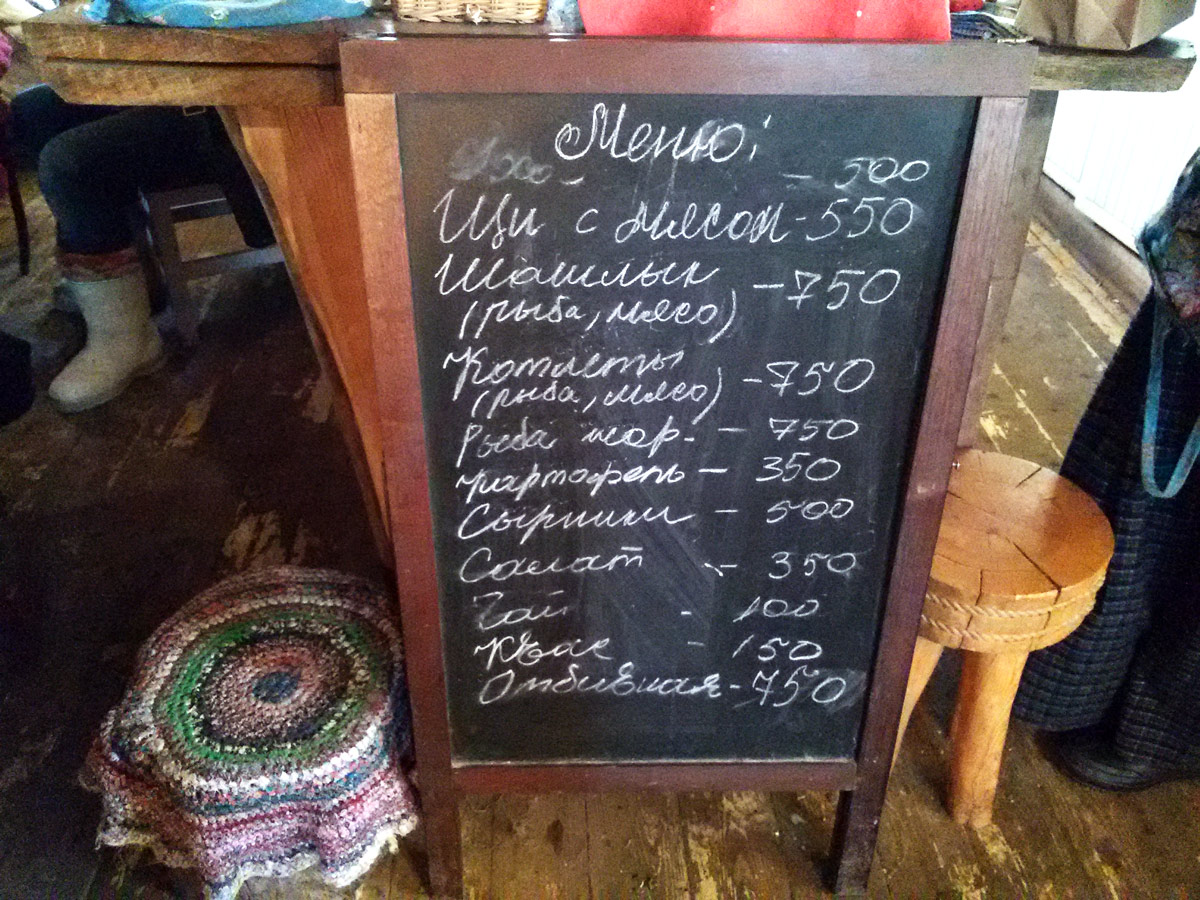 Меню:
- 500
Щи с мясом - 550
Шашлык - 750
(рыба, мясо)
Котлеты - 750
(рыба, мясо)
Рыба жар. - 750
картофель - 350
Сырники - 500
Салат - 350
Чай - 100
Квас - 150
Отбивная - 750